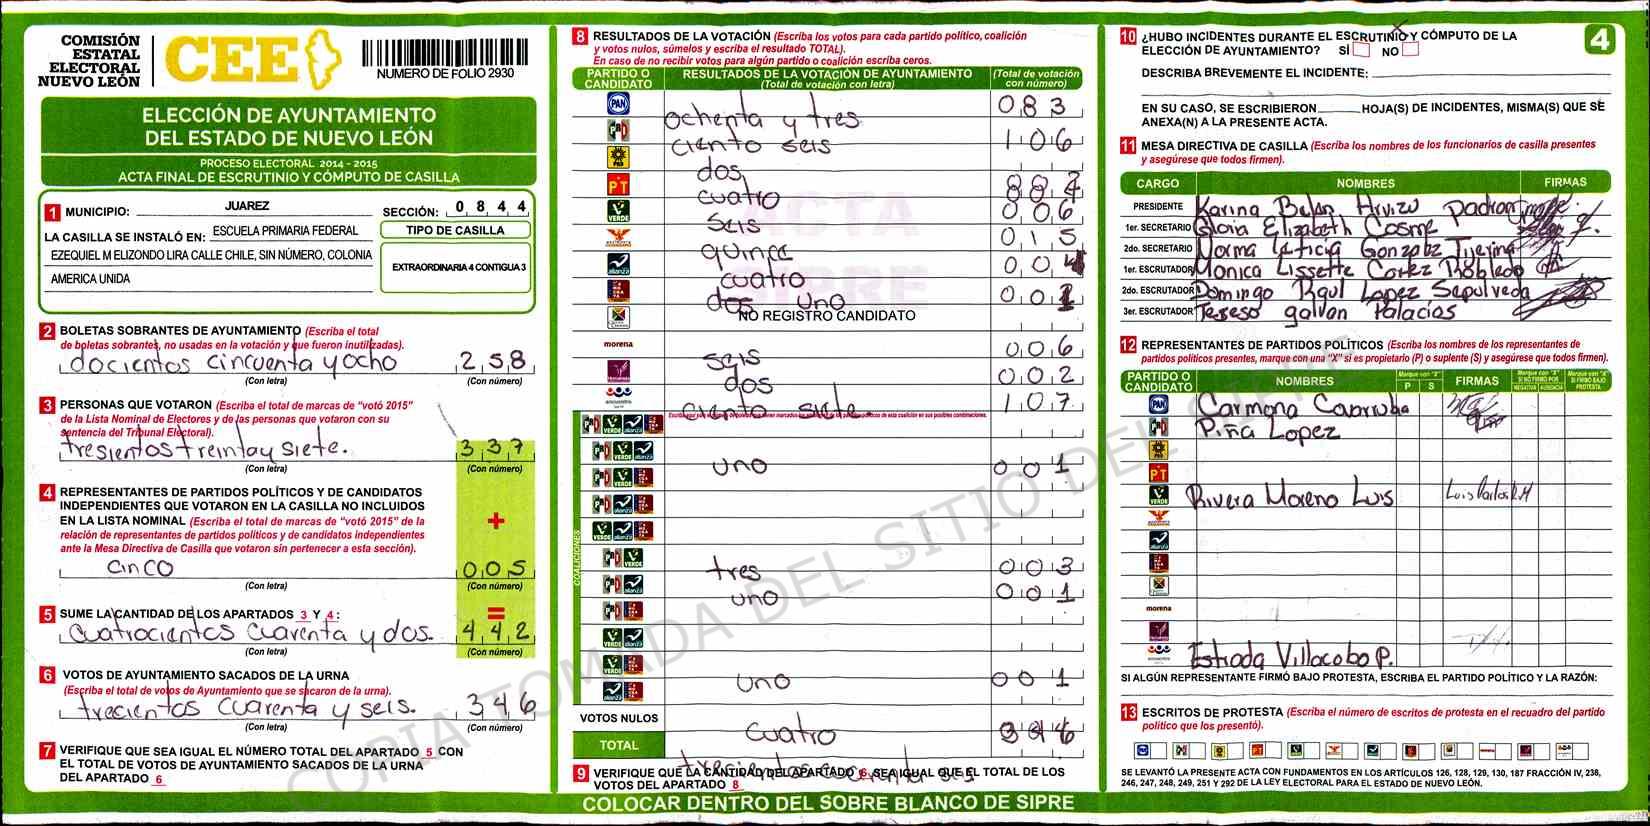 COMISIÓN
ESTATAL
ELECTORAL
NUEVO LEÓN
CEE
NUMERO DE FOLIO 2930
ELECCIÓN DE AYUNTAMIENTO
DEL ESTADO DE NUEVO LEÓN
PROCESO ELECTORAL 2014 - 2015
ACTA FINAL DE ESCRUTINIO Y CÓMPUTO DE CASILLA
1 MUNICIPIO: JUAREZ SECCIÓN: 0 8 4 4
LA CASILLA SE INSTALÓ EN: ESCUELA PRIMARIA FEDERAL
EZEQUIEL M ELIZONDO LIRA CALLE CHILE, SIN NÚMERO, COLONIA
AMERICA UNIDA
TIPO DE CASILLA
EXTRAORDINARIA 4 CONTIGUA 3
2 BOLETAS SOBRANTES DE AYUNTAMIENTO (Escriba el total
de boletas sobrantes, no usadas en la votación y que fueron inutilizadas).
docientos cincuenta y ocho 2 5 8
(Con letra) (Con número)
3 PERSONAS QUE VOTARON (Escriba el total de marcas de “votó 2015”
de la Lista Nominal de Electores y de las personas que votaron con su
sentencia del Tribunal Electoral).
tresientos treinta y siete. 3 3 7
(Con letra) (Con número)
4 REPRESENTANTES DE PARTIDOS POLÍTICOS Y DE CANDIDATOS
INDEPENDIENTES QUE VOTARON EN LA CASILLA NO INCLUIDOS
EN LA LISTA NOMINAL (Escriba el total de marcas de “votó 2015” de la
relación de representantes de partidos políticos y de candidatos independientes
ante la Mesa Directiva de Casilla que votaron sin pertenecer a esta sección).
+
cinco 0 0 5
(Con letra) (Con número)
5 SUME LA CANTIDAD DE LOS APARTADOS 3 Y 4: =
cuatrocientos cuarenta y dos. 4 4 2
(Con letra) (Con número)
6 VOTOS DE AYUNTAMIENTO SACADOS DE LA URNA
(Escriba el total de votos de Ayuntamiento que se sacaron de la urna).
trecientos cuarenta y seis. 3 4 6
(Con letra) (Con número)
7 VERIFIQUE QUE SEA IGUAL EL NÚMERO TOTAL DEL APARTADO 5 CON
EL TOTAL DE VOTOS DE AYUNTAMIENTO SACADOS DE LA URNA
DEL APARTADO 6
8 RESULTADOS DE LA VOTACIÓN (Escriba los votos para cada partido político, coalición
y votos nulos, súmelos y escriba el resultado TOTAL).
En caso de no recibir votos para algún partido o coalición escriba ceros.
PARTIDO O CANDIDATO RESULTADOS DE LA VOTACIÓN DE AYUNTAMIENTO (Total de votación con letra) (Total de votación con número)
PAN ochenta y tres 0 8 3
PRI ciento seis 1 0 6
PRD dos
PT cuatro
VERDE seis 0 0 6
quince 0 1 5
alianza cuatro 0 0 4
uno 0 0 1
NO REGISTRO CANDIDATO
morena seis 0 0 6
dos 0 0 2
encuentro ciento siete 1 0 7
COALICIONES
uno 0 0 1
tres 0 0 3
uno 0 0 1
uno 0 0 1
VOTOS NULOS cuatro
TOTAL trecientos cuarenta seis 3 4 6
9 VERIFIQUE QUE LA CANTIDAD DEL APARTADO 6 SEA IGUAL QUE EL TOTAL DE LOS
VOTOS DEL APARTADO 8
COLOCAR DENTRO DEL SOBRE BLANCO DE SIPRE
ACTA
SIPRE
COPIA TOMADA DEL SITIO DEL SIPRE
10 ¿HUBO INCIDENTES DURANTE EL ESCRUTINIO Y CÓMPUTO DE LA
ELECCIÓN DE AYUNTAMIENTO? SÍ NO X
4
DESCRIBA BREVEMENTE EL INCIDENTE:
EN SU CASO, SE ESCRIBIERON HOJA(S) DE INCIDENTES, MISMA(S) QUE SE
ANEXA(N) A LA PRESENTE ACTA.
11 MESA DIRECTIVA DE CASILLA (Escriba los nombres de los funcionarios de casilla presentes
y asegúrese que todos firmen).
CARGO NOMBRES FIRMAS
PRESIDENTE Karina Belan Arvizu Padron
1er. SECRETARIO Gloria Elizabeth Cosme
2do. SECRETARIO Norma Leticia Gonzalez Tijerina
1er. ESCRUTADOR Monica Lissette Cortez Robledo
2do. ESCRUTADOR Domingo Raul Lopez Sepulveda
3er. ESCRUTADOR galvan Palacios
12 REPRESENTANTES DE PARTIDOS POLÍTICOS (Escriba los nombres de los representantes de
partidos políticos presentes, marque con una “X” si es propietario (P) o suplente (S) y asegúrese que todos firmen).
PARTIDO O CANDIDATO NOMBRES Marque con “X” P S FIRMAS Marque con “X” SI NO FIRMÓ POR NEGATIVA AUSENCIA Marque con “X” SI FIRMÓ BAJO PROTESTA
PAN Carmona
PRI Piña Lopez
PRD
PT
VERDE Rivera Moreno Luis Luis Carlos R.M
alianza
morena
encuentro Estrada Villacobo P.
SI ALGÚN REPRESENTANTE FIRMÓ BAJO PROTESTA, ESCRIBA EL PARTIDO POLÍTICO Y LA RAZÓN:
13 ESCRITOS DE PROTESTA (Escriba el número de escritos de protesta en el recuadro del partido
político que los presentó).
SE LEVANTÓ LA PRESENTE ACTA CON FUNDAMENTOS EN LOS ARTÍCULOS 126, 128, 129, 130, 187 FRACCIÓN IV, 238,
246, 247, 248, 249, 251 Y 292 DE LA LEY ELECTORAL PARA EL ESTADO DE NUEVO LEÓN.